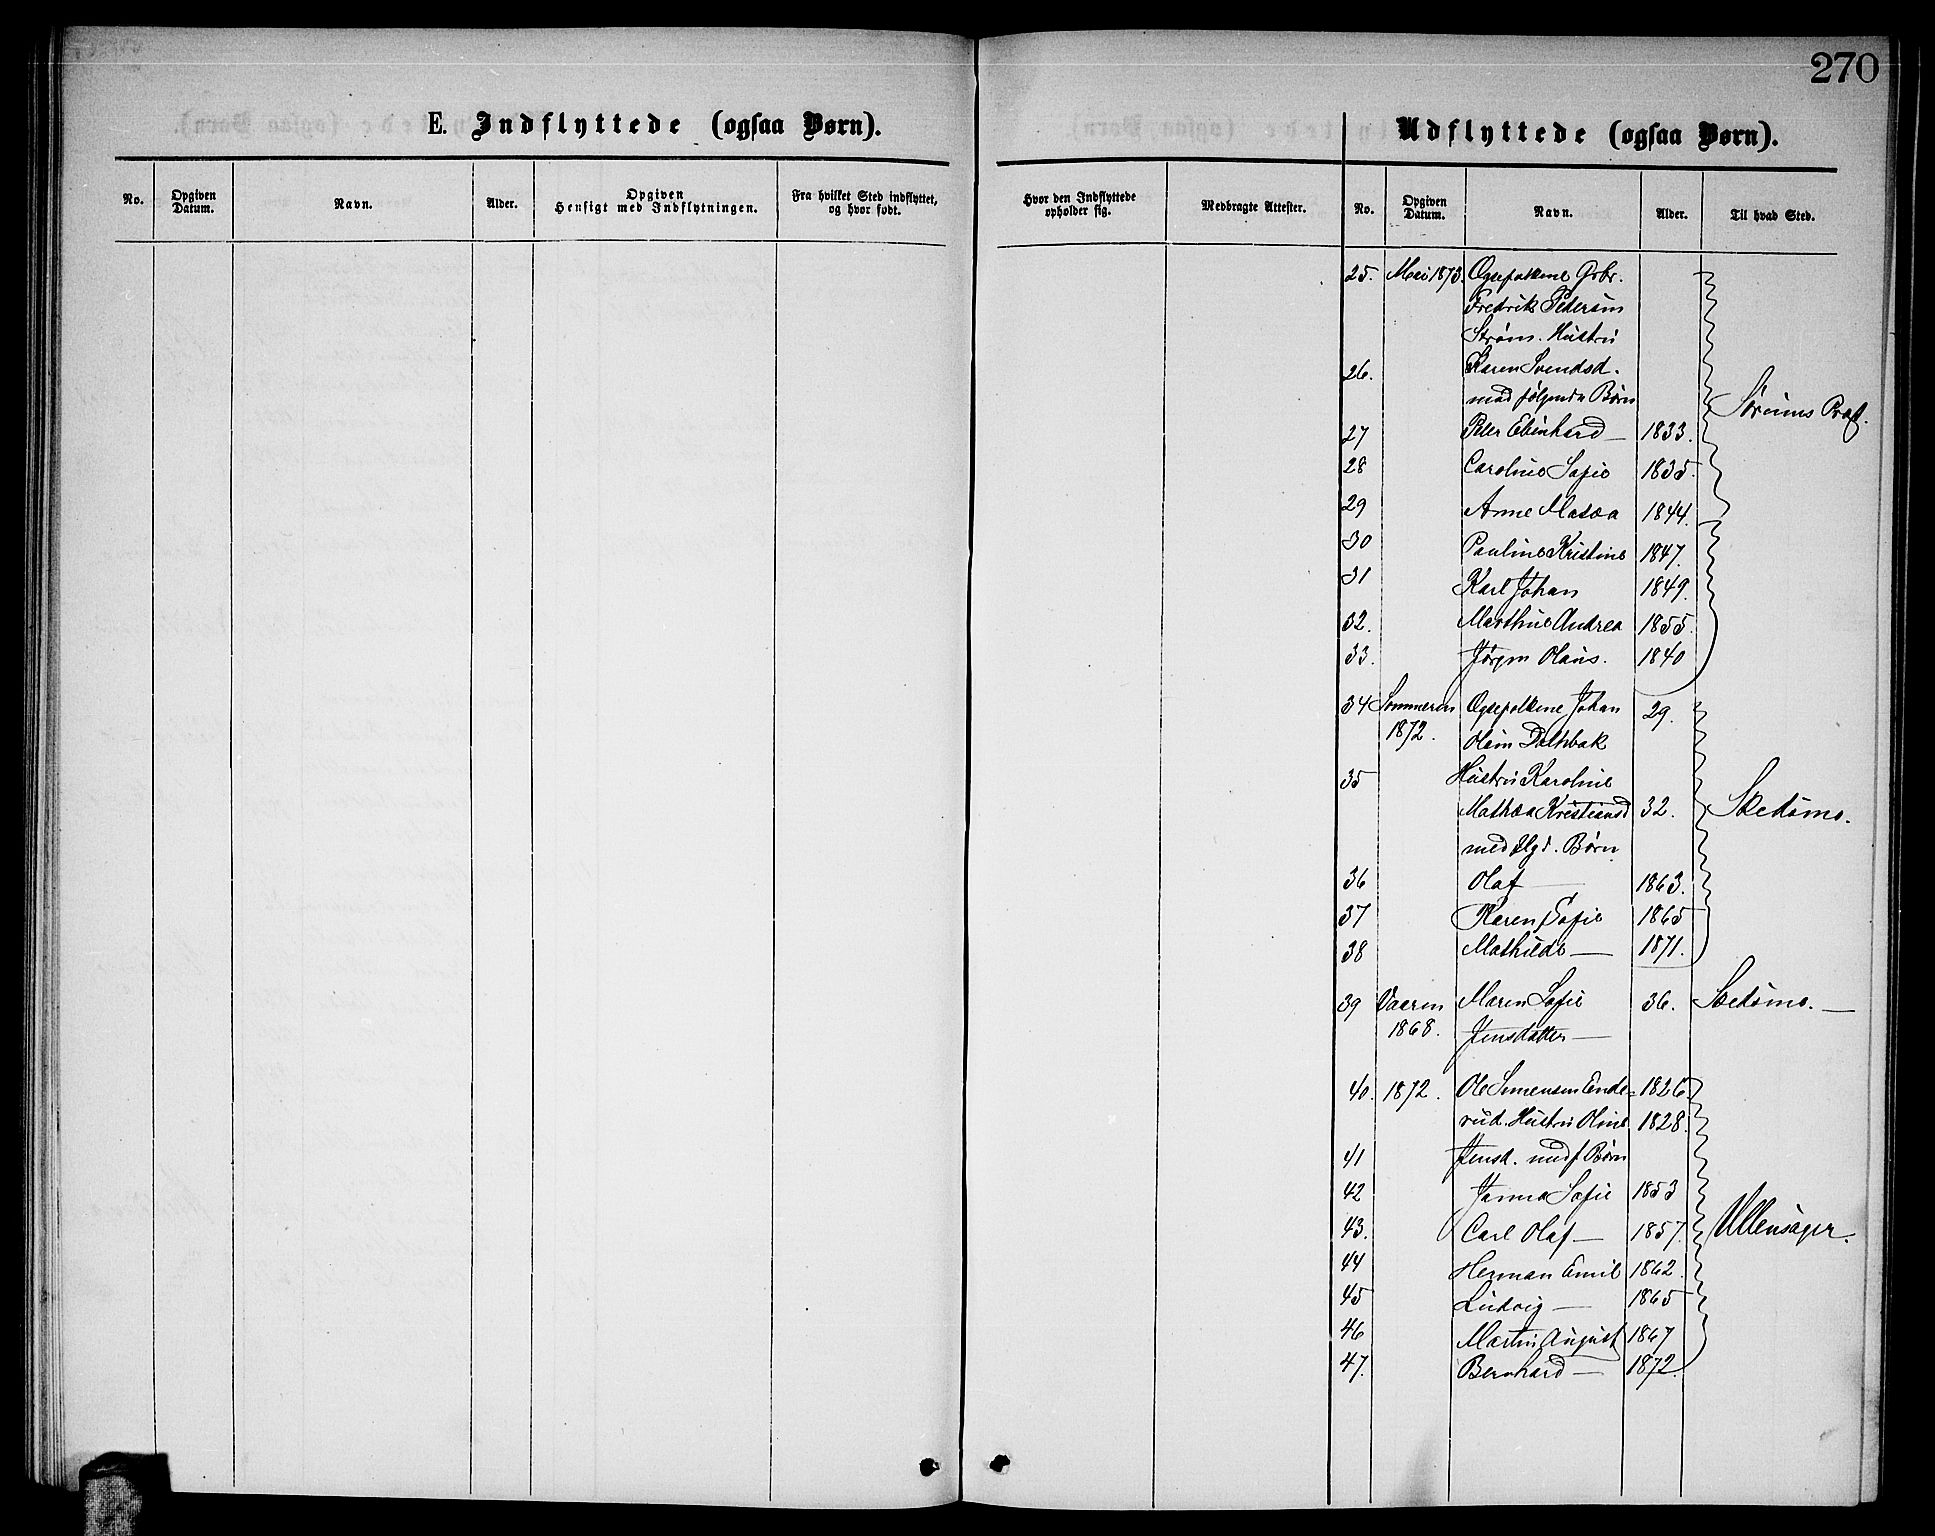 270
E. Indflyttede (ogsaa Børn).
Udflyttede (ogsaa Børn).
No.
Opgiven Datum.
Navn.
Alder.
Opgiven Hensigt med Indflytningen.
Fra hvilket Sted indflyttet, og hvor født.
Hvor den Indflyttede opholder sig.
Medbragte Attester.
No.
Opgiven Datum.
Navn.
Alder.
Til hvad Sted.
25. Mai 1873. Ogsefolkene Grbr.
Fredrik Petersøn
Strøm. Hustru
26. Karen Svendsd.
med følgende Børn
Sørums Præst.
27 Peter Edenhard — 1833.
28 Caroline Sofie 1835.
29 Anne Matea 1844.
30 Pauline Kristine 1847.
31 Karl Johan 1849.
32. Marthine Andrea 1855.
33. Jørgen Olaus. 1840
34 Sommeren 1872. Ogsefolkene Johan 29.
Olsøn Dalhbak
35 Hustru Karoline
Mathea Kristiansd 32. Skedsmo.
med flgd. Børn
36 Olaf — 1863.
37 Karen Sofie 1865
38 Mathilde — 1871.
39 Vaaren 1868. Maren Sofie 36. Skedsmo. —
Jensdatter —
40. 1872. Ole Simensen Ende= 1826
rud. Hustru Oline 1828.
41 Jensd. med f Børn
42 Janna Sofie 1853
43. Carl Olaf — 1857. Ullensager.
44 Herman Emil 1862.
45 Ludvig — 1865
46 Martin August 1867
47. Bernhard — 1872.